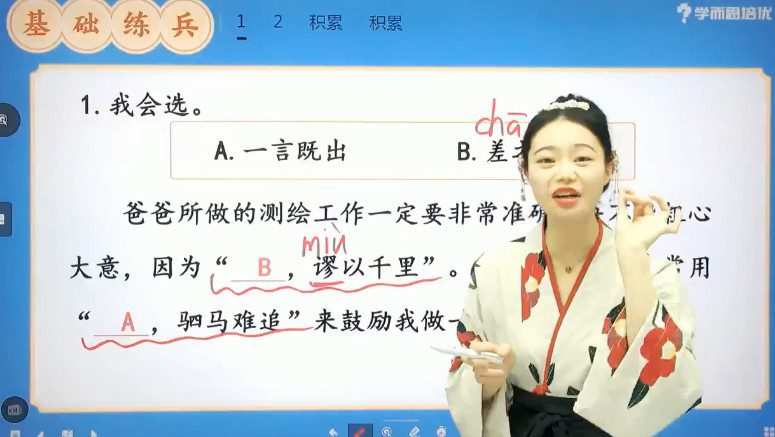 基础练兵
1 2 积累 积累
学而思培优
1.我会选。
chā
A.一言既出 B.差
爸爸所做的测绘工作一定要非常准确
心
miù
大意，因为“B，谬以千里”。
常用
“A，驷马难追”来鼓励我做一